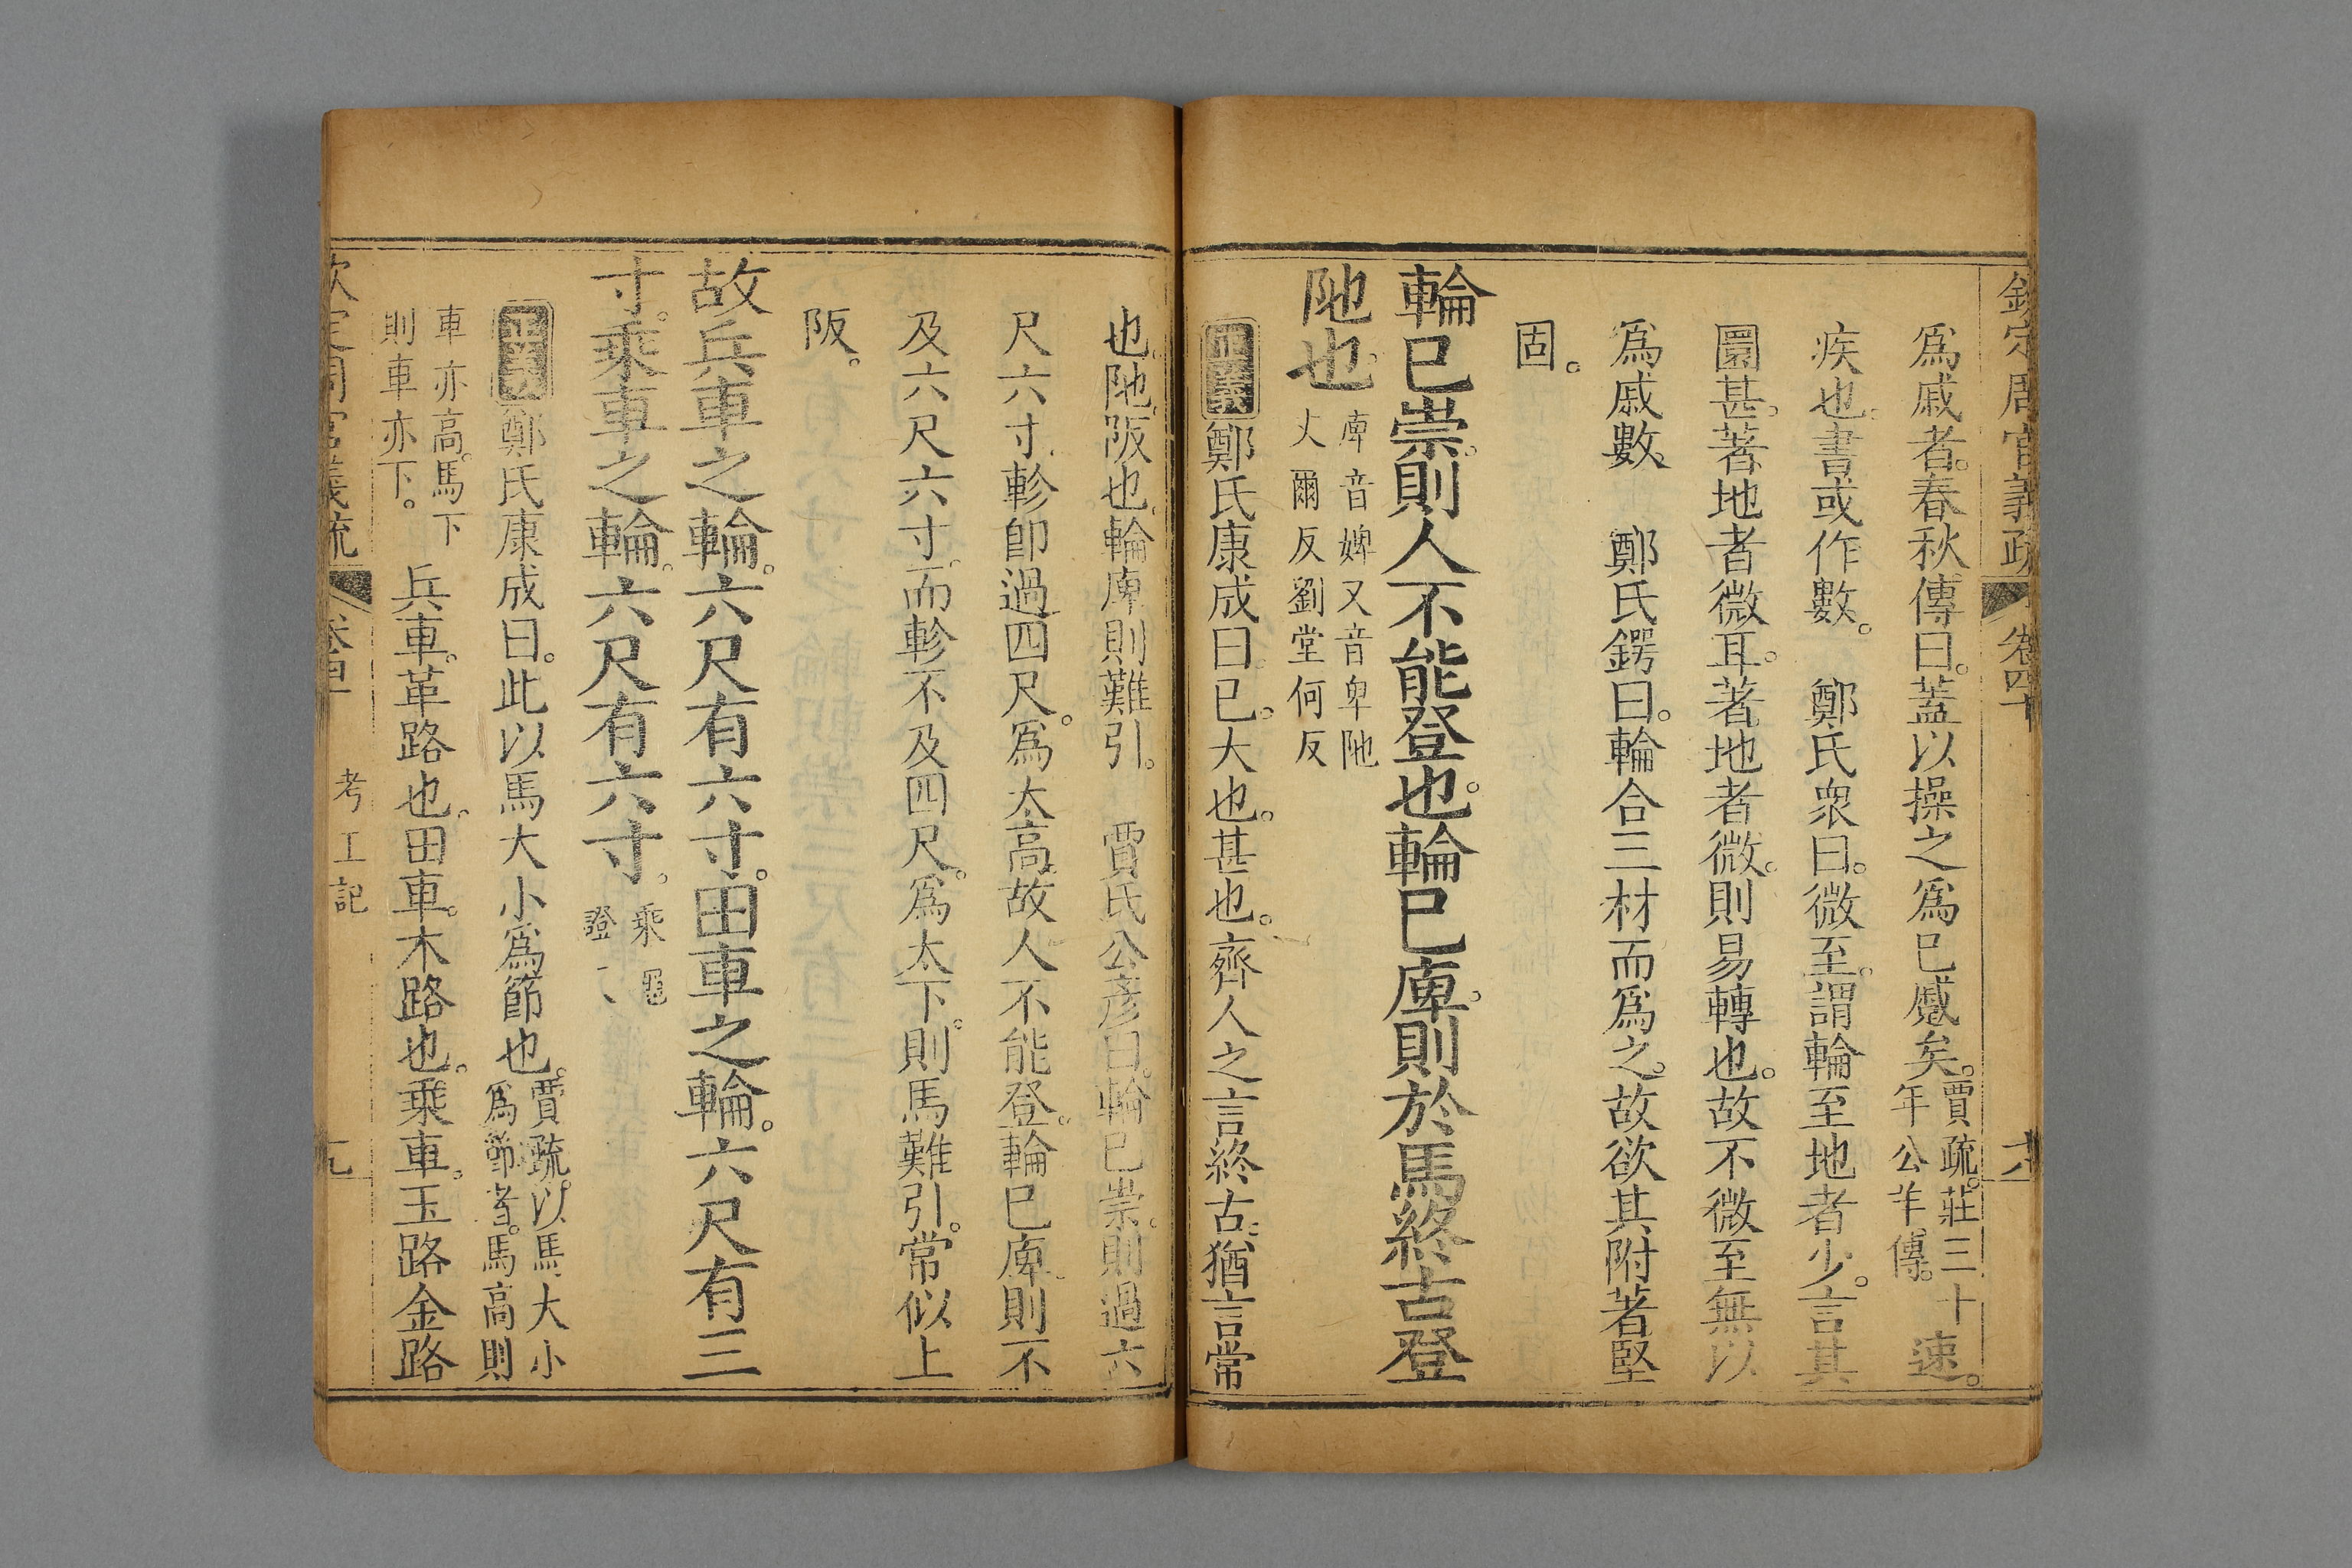 欽定周官義疏 卷四十 六
爲戚者。春秋傳曰。蓋以操之爲已蹙矣。賈疏。莊三十年公羊傳。速。
疾也。書或作數。 鄭氏衆曰。微至。謂輪至地者少。言其
圜甚。著地者微耳。著地者微。則易轉也。故不微至無以
爲戚數。 鄭氏鍔曰。輪合三材而爲之。故欲其附著堅
固。
輪已崇。則人不能登也。輪已庳。則於馬終古登
阤也。庳音婢又音卑阤丈爾反劉堂何反
正義鄭氏康成曰。已。大也。甚也。齊人之言終古。猶言常
也。阤。阪也。輪庳則難引。 賈氏公彥曰。輪已崇。則過六
尺六寸。軫卽過四尺。爲太高。故人不能登。輪已庳。則不
及六尺六寸。而軫不及四尺。爲太下。則馬難引。常似上
阪。
故兵車之輪。六尺有六寸。田車之輪。六尺有三
寸。乘車之輪。六尺有六寸。乘 證
正義鄭氏康成曰。此以馬大小爲節也。賈疏。以馬大小爲節者。馬高則
車亦高。馬下則車亦下。 兵車。革路也。田車。木路也。乘車。玉路金路
考工記